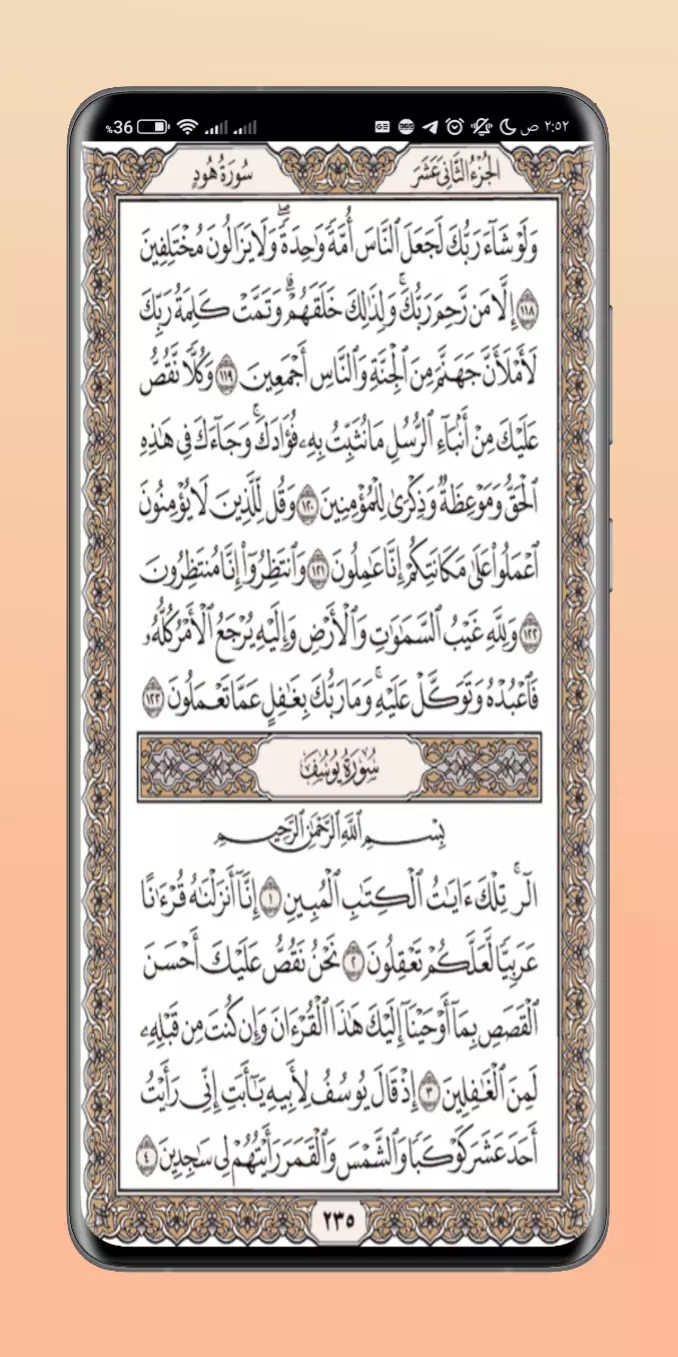 ٢:٥٢ ص
%36
الجُزْءُ الثَّانِي عَشَرَ
سُورَةُ هُودٍ
وَلَوْ شَآءَ رَبُّكَ لَجَعَلَ ٱلنَّاسَ أُمَّةً وَٰحِدَةً ۖ وَلَا يَزَالُونَ مُخْتَلِفِينَ
١١٨ إِلَّا مَن رَّحِمَ رَبُّكَ ۚ وَلِذَٰلِكَ خَلَقَهُمْ ۗ وَتَمَّتْ كَلِمَةُ رَبِّكَ
لَأَمْلَأَنَّ جَهَنَّمَ مِنَ ٱلْجِنَّةِ وَٱلنَّاسِ أَجْمَعِينَ ١١٩ وَكُلًّا نَّقُصُّ
عَلَيْكَ مِنْ أَنۢبَآءِ ٱلرُّسُلِ مَا نُثَبِّتُ بِهِۦ فُؤَادَكَ ۚ وَجَآءَكَ فِى هَٰذِهِ
ٱلْحَقُّ وَمَوْعِظَةٌ وَذِكْرَىٰ لِلْمُؤْمِنِينَ ١٢٠ وَقُل لِّلَّذِينَ لَا يُؤْمِنُونَ
ٱعْمَلُوا۟ عَلَىٰ مَكَانَتِكُمْ إِنَّا عَٰمِلُونَ ١٢١ وَٱنتَظِرُوٓا۟ إِنَّا مُنتَظِرُونَ
١٢٢ وَلِلَّهِ غَيْبُ ٱلسَّمَٰوَٰتِ وَٱلْأَرْضِ وَإِلَيْهِ يُرْجَعُ ٱلْأَمْرُ كُلُّهُۥ
فَٱعْبُدْهُ وَتَوَكَّلْ عَلَيْهِ ۚ وَمَا رَبُّكَ بِغَٰفِلٍ عَمَّا تَعْمَلُونَ ١٢٣
سُورَةُ يُوسُفَ
بِسْمِ ٱللَّهِ ٱلرَّحْمَٰنِ ٱلرَّحِيمِ
الٓر ۚ تِلْكَ ءَايَٰتُ ٱلْكِتَٰبِ ٱلْمُبِينِ ١ إِنَّآ أَنزَلْنَٰهُ قُرْءَٰنًا
عَرَبِيًّا لَّعَلَّكُمْ تَعْقِلُونَ ٢ نَحْنُ نَقُصُّ عَلَيْكَ أَحْسَنَ
ٱلْقَصَصِ بِمَآ أَوْحَيْنَآ إِلَيْكَ هَٰذَا ٱلْقُرْءَانَ وَإِن كُنتَ مِن قَبْلِهِۦ
لَمِنَ ٱلْغَٰفِلِينَ ٣ إِذْ قَالَ يُوسُفُ لِأَبِيهِ يَٰٓأَبَتِ إِنِّى رَأَيْتُ
أَحَدَ عَشَرَ كَوْكَبًا وَٱلشَّمْسَ وَٱلْقَمَرَ رَأَيْتُهُمْ لِى سَٰجِدِينَ ٤
٢٣٥